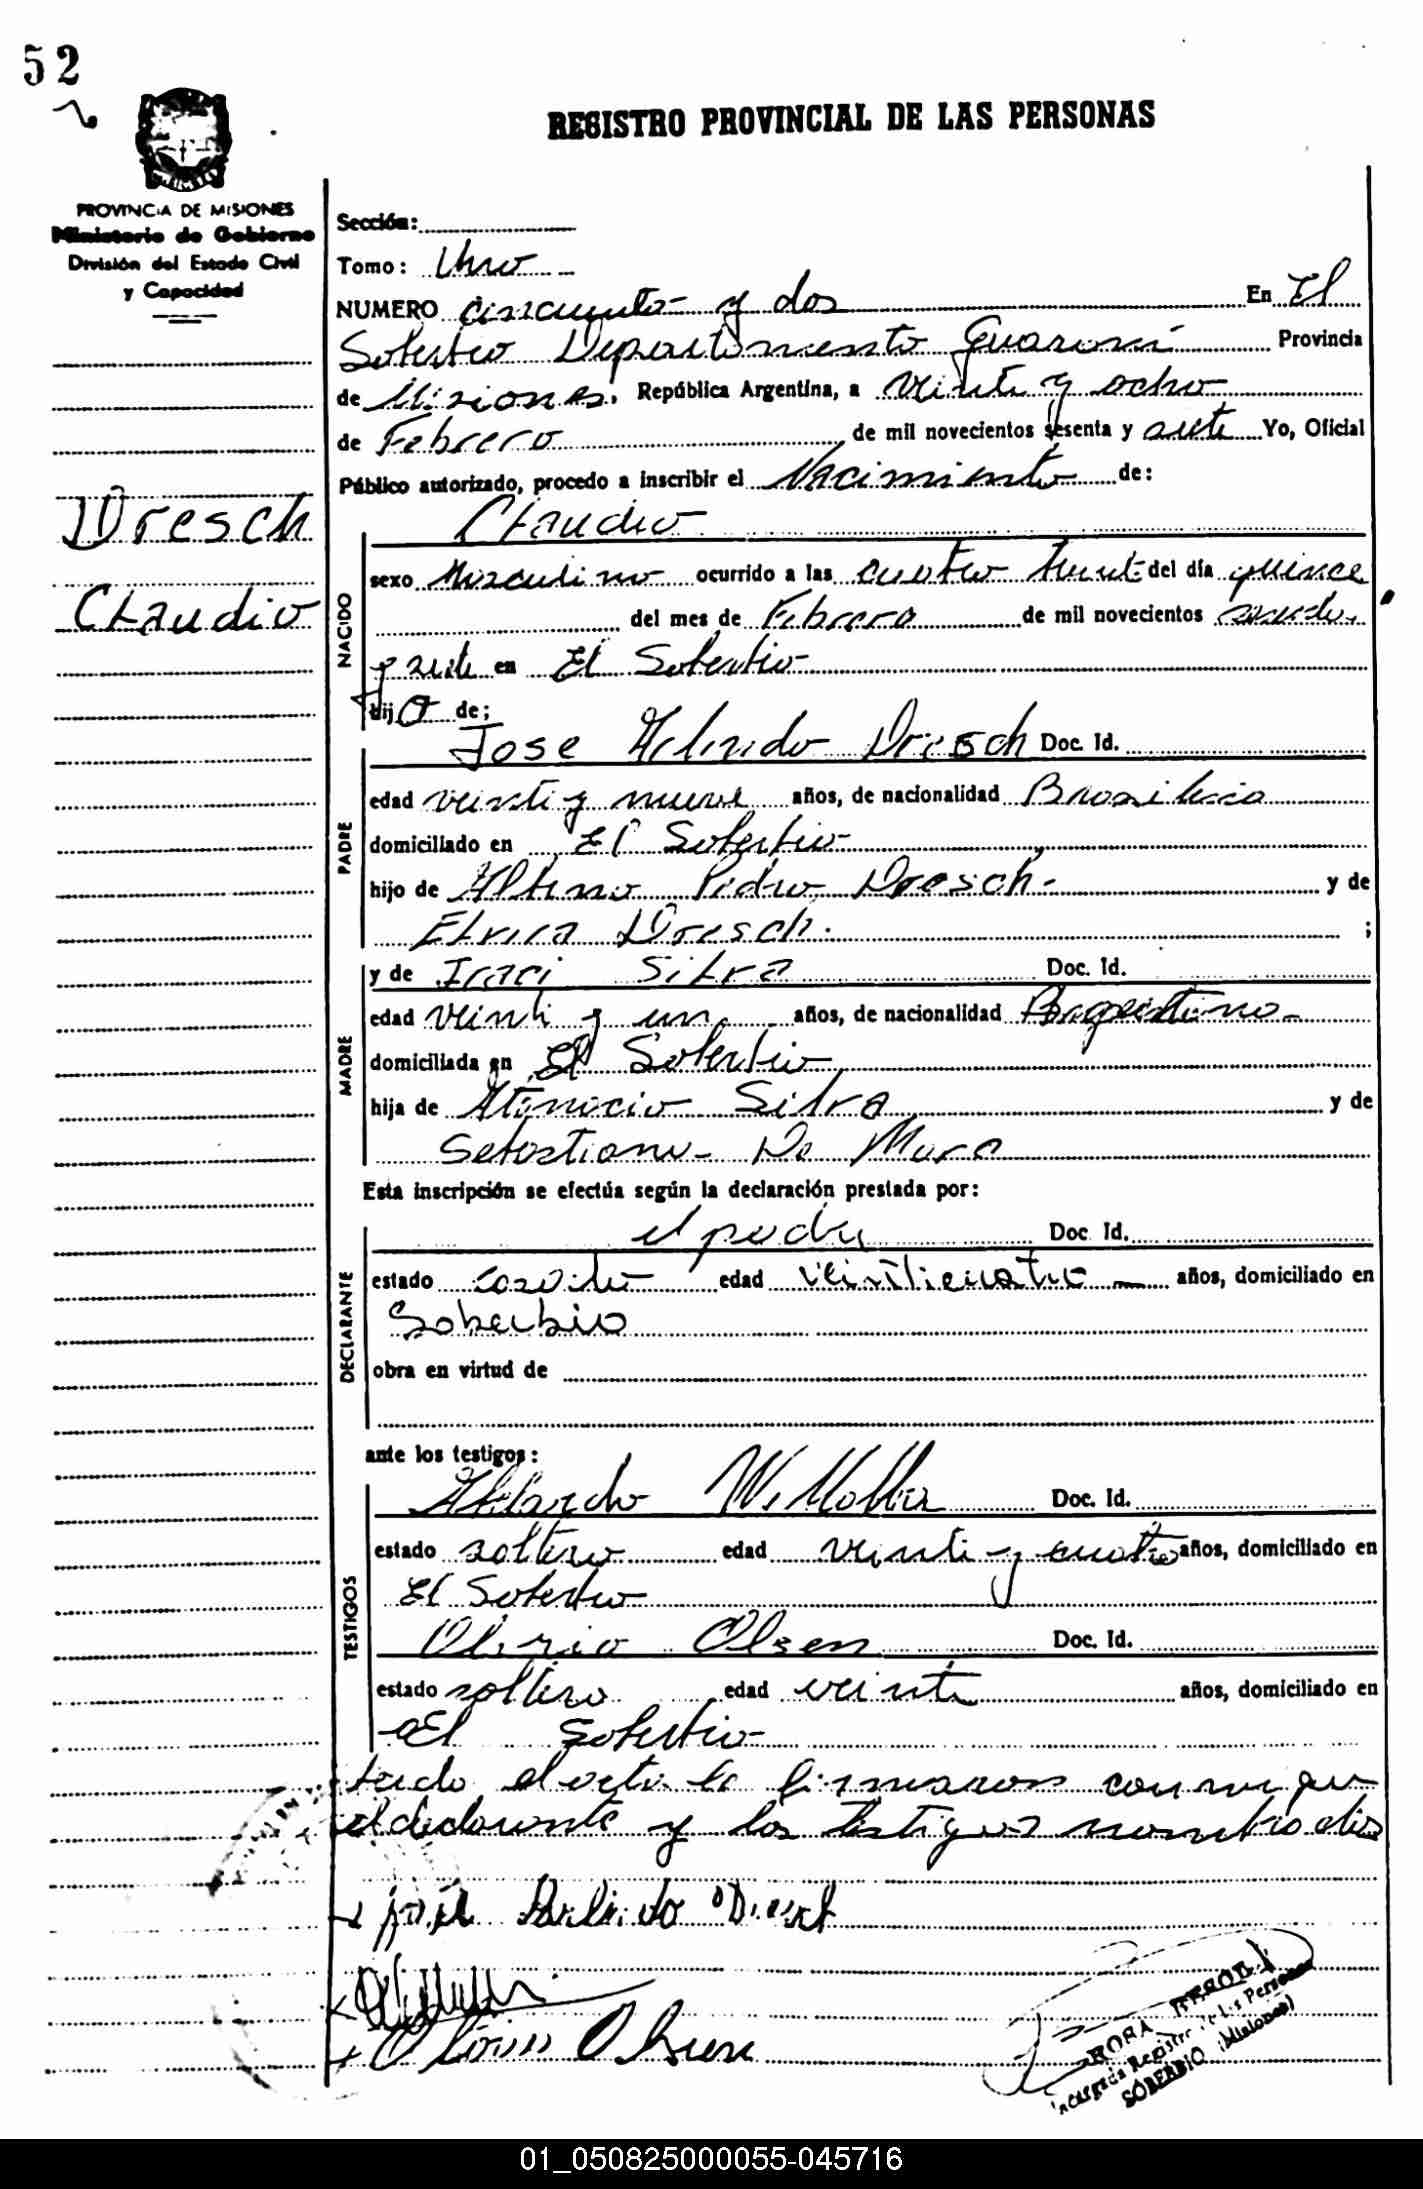 52
REGISTRO PROVINCIAL DE LAS PERSONAS
PROVINCIA DE MISIONES
Ministerio de Gobierno
División del Estado Civil
y Capacidad
Dresch
Claudio
Sección:
Tomo: Uno
NUMERO cincuenta y dos En El
Soberbio Departamento Guaraní Provincia
de Misiones, República Argentina, a veinte y ocho
de Febrero de mil novecientos sesenta y siete Yo, Oficial
Público autorizado, procedo a inscribir el Nacimiento de:
Claudio
NACIDO
sexo Masculino ocurrido a las cuatro treint del día quince
del mes de Febrero de mil novecientos sesenta
y siete en El Soberbio
hijo de;
PADRE
Jose Dresch Doc. Id.
edad veinti y nueve años, de nacionalidad Brasilera
domiciliado en El Soberbio
hijo de Albino Pedro Dresch y de
Elvira Dresch ;
MADRE
y de Iraci Silva Doc. Id.
edad veinti y un años, de nacionalidad Argentina
domiciliada en El Soberbio
hija de Silva y de
Sebastiana De Mora
Esta inscripción se efectúa según la declaración prestada por:
DECLARANTE
el padre Doc. Id.
estado casado edad veinticuatro años, domiciliado en
Soberbio
obra en virtud de
ante los testigos:
TESTIGOS
Abelardo Doc. Id.
estado soltero edad veinti y cuatro años, domiciliado en
El Soberbio
Olirio Olsen Doc. Id.
estado soltero edad veinte años, domiciliado en
El Soberbio
leido el acta la firmaron conmigo
el declarante y los testigos nombrados
José
Olsen
RORA
Encargada Registro de las Personas
SOBERBIO (Misiones)
01_050825000055-045716